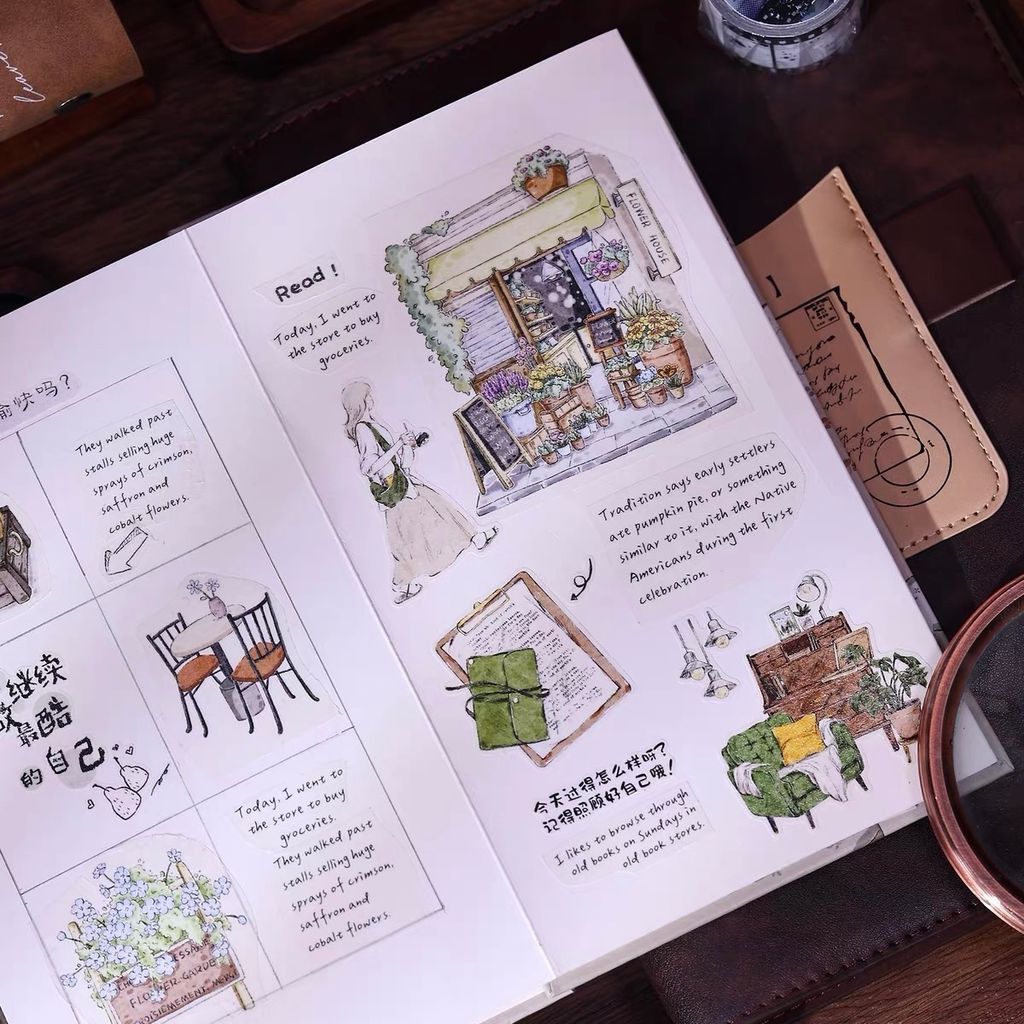 愉快吗?
They walked past
stalls selling huge
sprays of crimson,
saffron and
cobalt flowers.
继续
最酷
的自己
Today, I went to
the store to buy
groceries.
They walked past
stalls selling huge
sprays of crimson,
saffron and
cobalt flowers.
FLOWER GARDE
Read!
Today, I went to
the store to buy
groceries.
FLOWER HOUSE
Tradition says early settlers
ate pumpkin pie, or something
similar to it, with the Native
Americans during the first
celebration.
今天过得怎么样呀?
记得照顾好自己哦!
I likes to browse through
old books on Sundays in
old book stores.